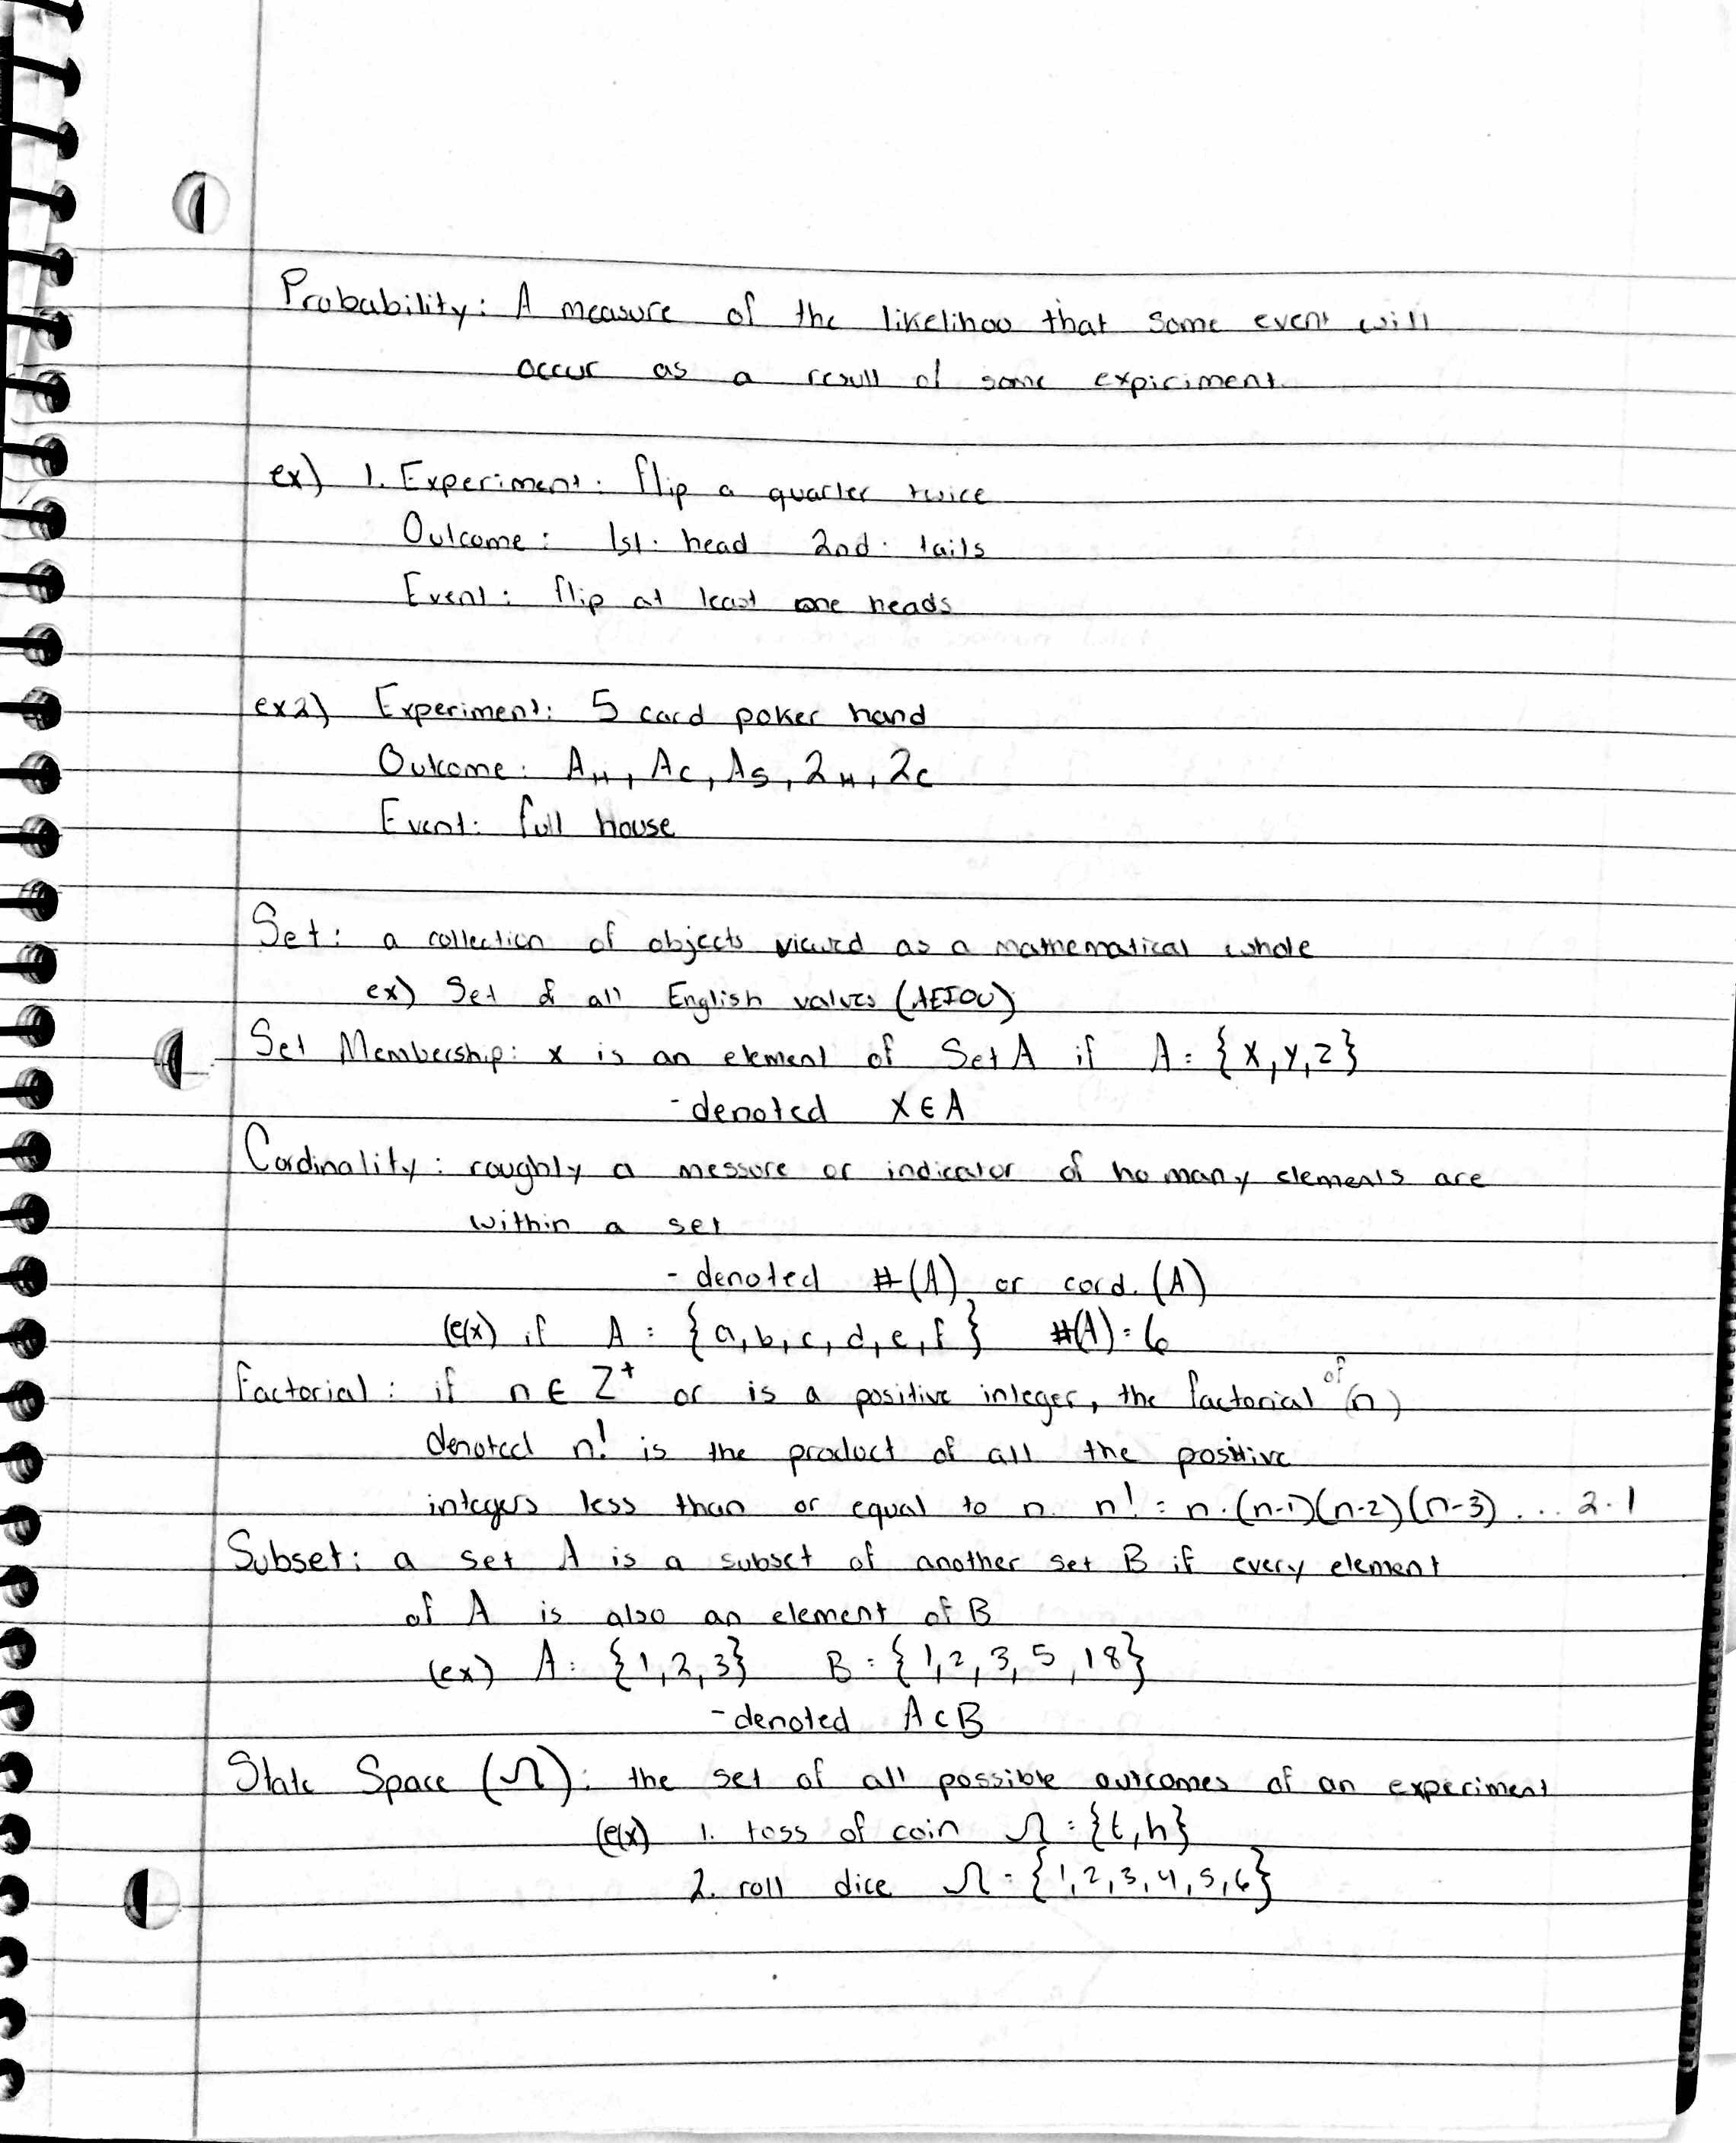 Probability: A measure of the likelihoo that some event will
occur as a result of some expiriment
ex) 1. Experiment: flip a quarter twice
Outcome: 1st: head 2nd: tails
Event: flip at least one heads
ex2) Experiment: 5 card poker hand
Outcome: A_H, A_C, A_S, 2_H, 2_C
Event: full house
Set: a collection of objects viewed as a mathematical whole
ex) Set of all English values (AEIOU)
Set Membership: x is an element of Set A if A = {x, y, z}
- denoted x ∈ A
Cardinality: roughly a messure or indicator of ho many elements are
within a set
- denoted #(A) or card. (A)
(ex) if A = {a, b, c, d, e, f} #(A) = 6
Factorial: if n ∈ Z⁺ or is a positive integer, the factorial of (n)
denoted n! is the product of all the positive
integers less than or equal to n. n! = n·(n-1)(n-2)(n-3) ... 2·1
Subset: a set A is a subset of another set B if every element
of A is also an element of B
(ex) A = {1, 2, 3} B = {1, 2, 3, 5, 18}
- denoted A ⊂ B
State Space (Ω): the set of all possible outcomes of an experiment
(ex) 1. toss of coin Ω = {t, h}
2. roll dice Ω = {1, 2, 3, 4, 5, 6}